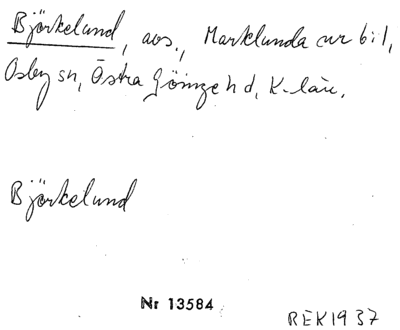 Björkelund, avs., Marklunda nr 6:1,
Osby sn, Östra Göinge hd, K-län.
Björkelund
Nr 13584
REK1937